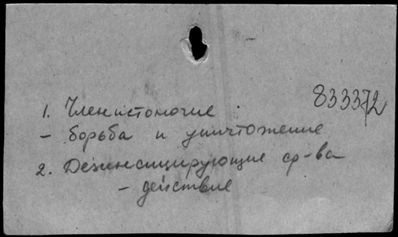 833372
1. Членистоногие
- борьба и уничтожение
2. Дезинсицирующие ср-ва
- действие